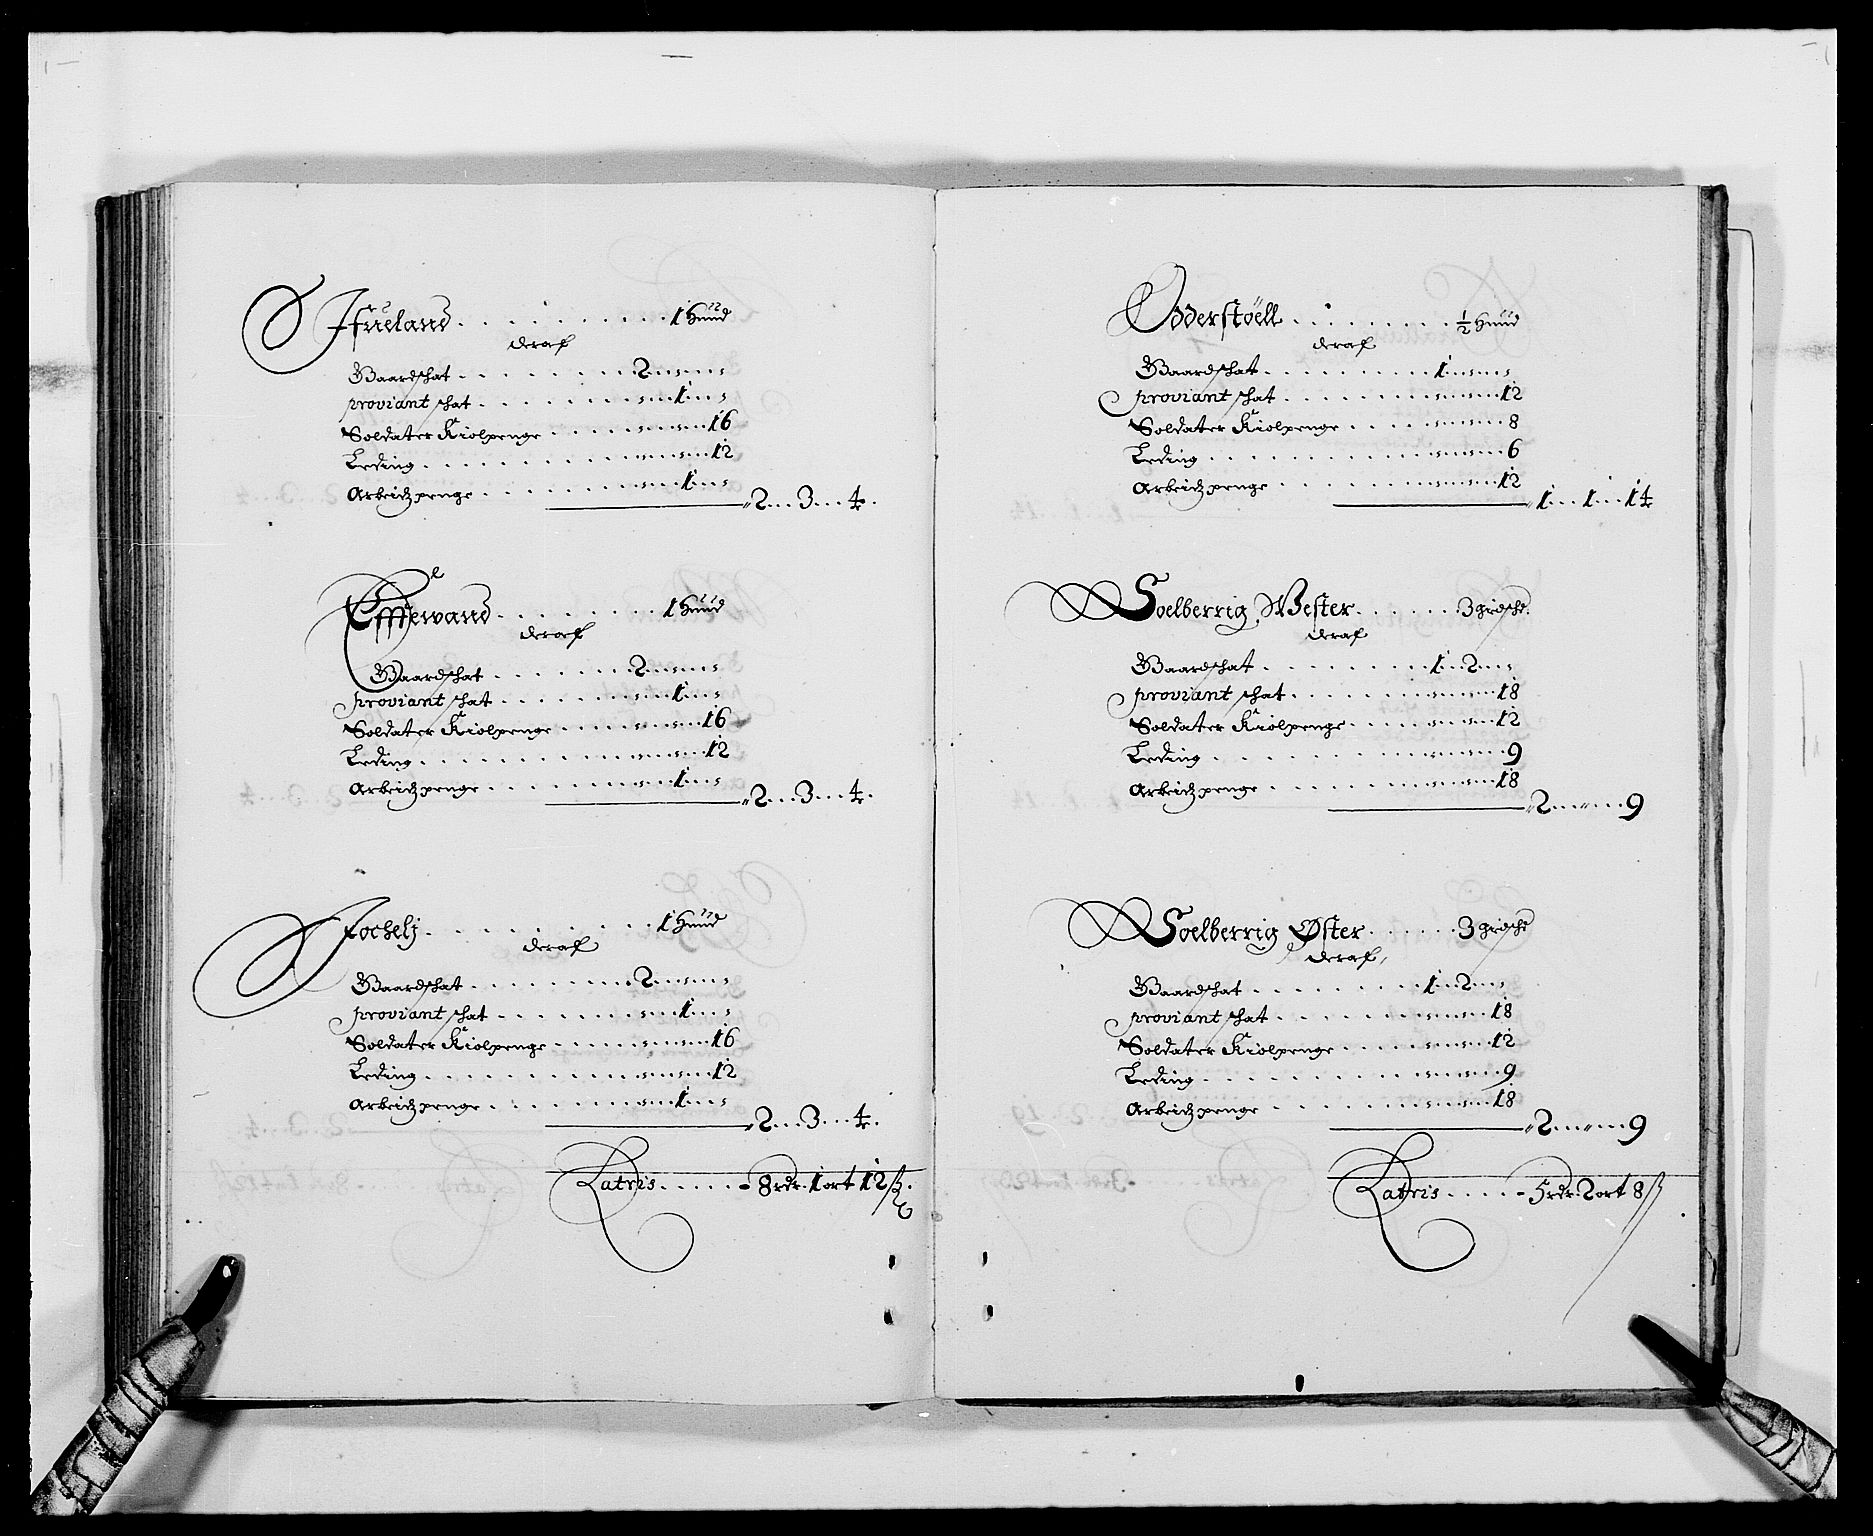 Ifrueland . . . . . . . . 1 Huud
deraf
Gaardschat . . . . . . . 2 - -
proviant schat . . . . . . 1 -
Soldater Kiolpenge . . . . . 16
Leding . . . . . . . . . 12
Arbeidzpenge . . . . . . 1 -
2 - 3 - 4.
Efffewand . . . . . . . 1 Huud
deraf
Gaardschat . . . . . . . 2 - -
proviant schat . . . . . . 1 -
Soldater Kiolpenge . . . . . 16
Leding . . . . . . . . . 12
Arbeidzpenge . . . . . . 1 -
2 - 3 - 4.
Jochelj . . . . . . . . 1 Huud
deraf
Gaardschat . . . . . . . 2 - -
proviant schat . . . . . . 1 -
Soldater Kiolpenge . . . . . 16
Leding . . . . . . . . . 12
Arbeidzpenge . . . . . . 1 -
2 - 3 - 4.
Latris . . . . . 8 rdr. 1 ort 12 ß.
Odderstöell . . . . . . . ½ Huud
deraf
Gaardschat . . . . . . . 1 - -
proviant schat . . . . . . 12
Soldater Kiolpenge . . . . . 8
Leding . . . . . . . . . 6
Arbeidzpenge . . . . . . 12
1 - 1 - 14
Soelberrig Wester . . . . . . 3
deraf
Gaardschat . . . . . . . 1 - 2 -
proviant schat . . . . . . 18
Soldater Kiolpenge . . . . . 12
Leding . . . . . . . . . 9
Arbeidzpenge . . . . . . 18
2 - - 9
Soelberrig Øster . . . . . . 3
deraf
Gaardschat . . . . . . . 1 - 2 -
proviant schat . . . . . . 18
Soldater Kiolpenge . . . . . 12
Leding . . . . . . . . . 9
Arbeidzpenge . . . . . . 18
2 - - 9
Latris . . . . . 5 rdr. 2 ort 8 ß